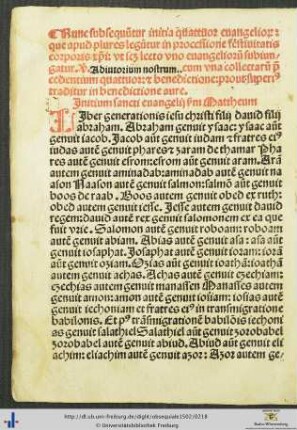 Nunc subsequūtur initia quattuor evangelioꝝ:
que apud plures legūtur in processione festiuitatis
corporis xp̄i: ve scꝫ lecto vno evangelioꝝ subiun-
gatur. ℣. Adiutorium nostrum. cum vna collectarū
cedentium quattuor: ⁊ benedictione: prout super⁹
traditur in benedictione aure.
Initium sancti evangelij sm̄ Mattheum
LIber generationis iesu christi filij dauid filij
abraham. Abraham genuit ysaac: ysaac aūt
genuit iacob. Jacob aūt genuit iudam ⁊ fratres ei⁹
iudas autē genuit phares ⁊ zaram de thamar Pha
res autē genuit esrom: esrom aūt genuit aram. Arā
autem genuit aminadab: aminadab autē genuit na
ason Naason autē genuit salmon: salmō aūt genuit
boos de raab. Boos autem genuit obed ex ruth:
obed autem genuit iesse. Jesse autem genuit dauid
regem: dauid autē rex genuit salomonem ex ea que
fuit vrie. Salomon autē genuit roboam: roboam
autē genuit abiam. Abias autē genuit asa: asa aūt
genuit iosaphat. Josaphat autē genuit ioram: iorā
aūt genuit oziam. Ozias aūt genuit ioathā: ioathā
autem genuit achas. Achas autē genuit ezechiam:
ezechias autem genuit manassen Manasses autem
genuit amon: amon autē genuit iosiam: iosias autē
genuit iechoniam et fratres ei⁹ in transmigratione
babilonis. Et p⁹ trāsmigrationē babilōis iechoni
as genuit salathiel Salathiel aūt genuit zorobabel
zorobabel autē genuit abiud. Abiud aūt genuit eli
achim: eliachim autē genuit azor: Azor autem ge-
http://dl.ub.uni-freiburg.de/diglit/obsequiale1502/0218
© Universitätsbibliothek Freiburg